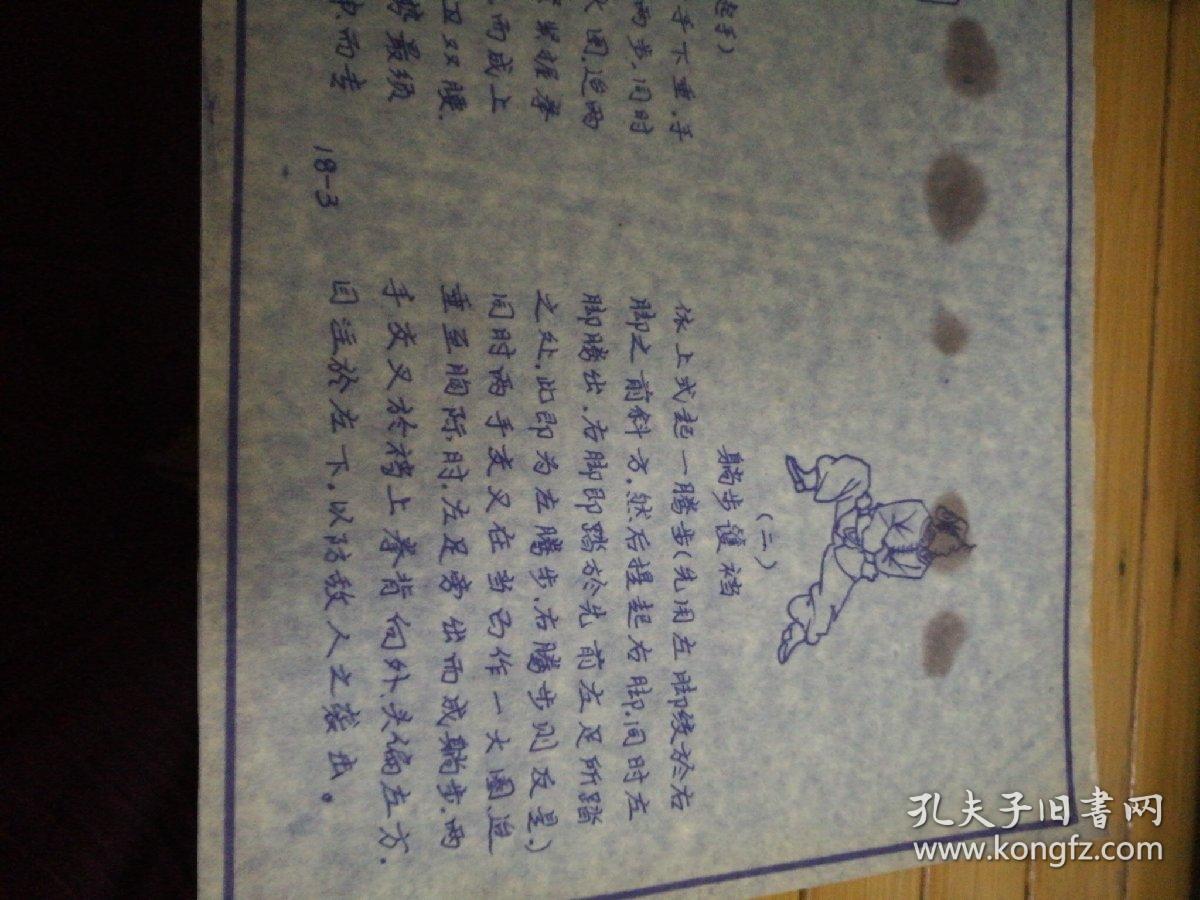 起手）
手下垂.手
两步.同时
大圈.迨两
紧握拳
而成上
卫双腰.
势最须
18-3
（二）
躺步護裆
依上式起一腾步(先用左脚绕於右
脚之前斜方.然后提起右脚.同时左
脚腾出.右脚即踏於先前左足所踏
之处.此即为左腾步.右腾步则反是.)
同时两手交叉在作一大圈.迨
垂至胸际时.左足旁出而成躺步.两
手交叉於裆上拳背向外.头偏左方.
目注於左下.以防敌人之袭击。
孔夫子旧书网
www.kongfz.com